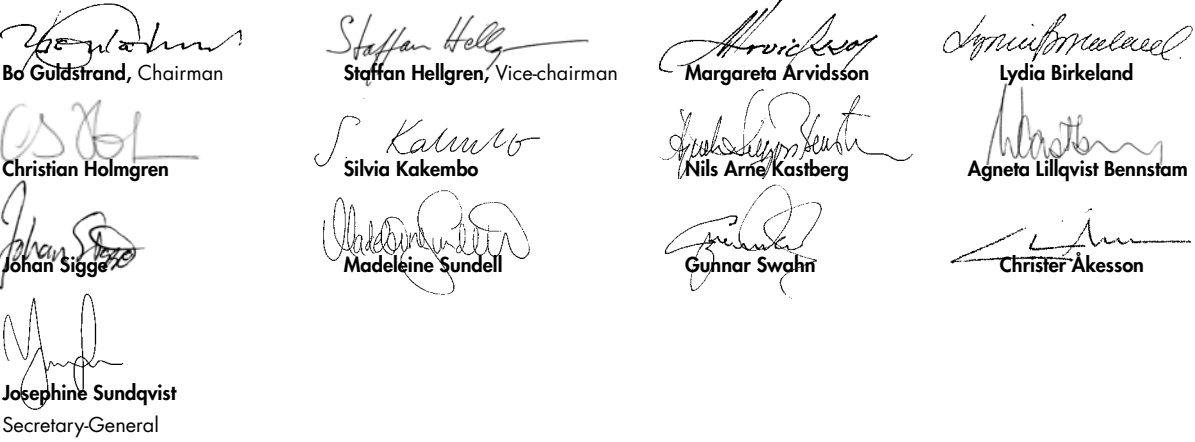 Staffan Hellg
Bo Guldstrand, Chairman
Staffan Hellgren, Vice-chairman
Margareta Arvidsson
Lydia Birkeland
S. Kakembo
Christian Holmgren
Silvia Kakembo
Nils Arne Kastberg
Agneta Lillqvist Bennstam
Johan Sigge
Madeleine Sundell
Johan Sigge
Madeleine Sundell
Gunnar Swahn
Christer Åkesson
Josephine Sundqvist
Secretary-General